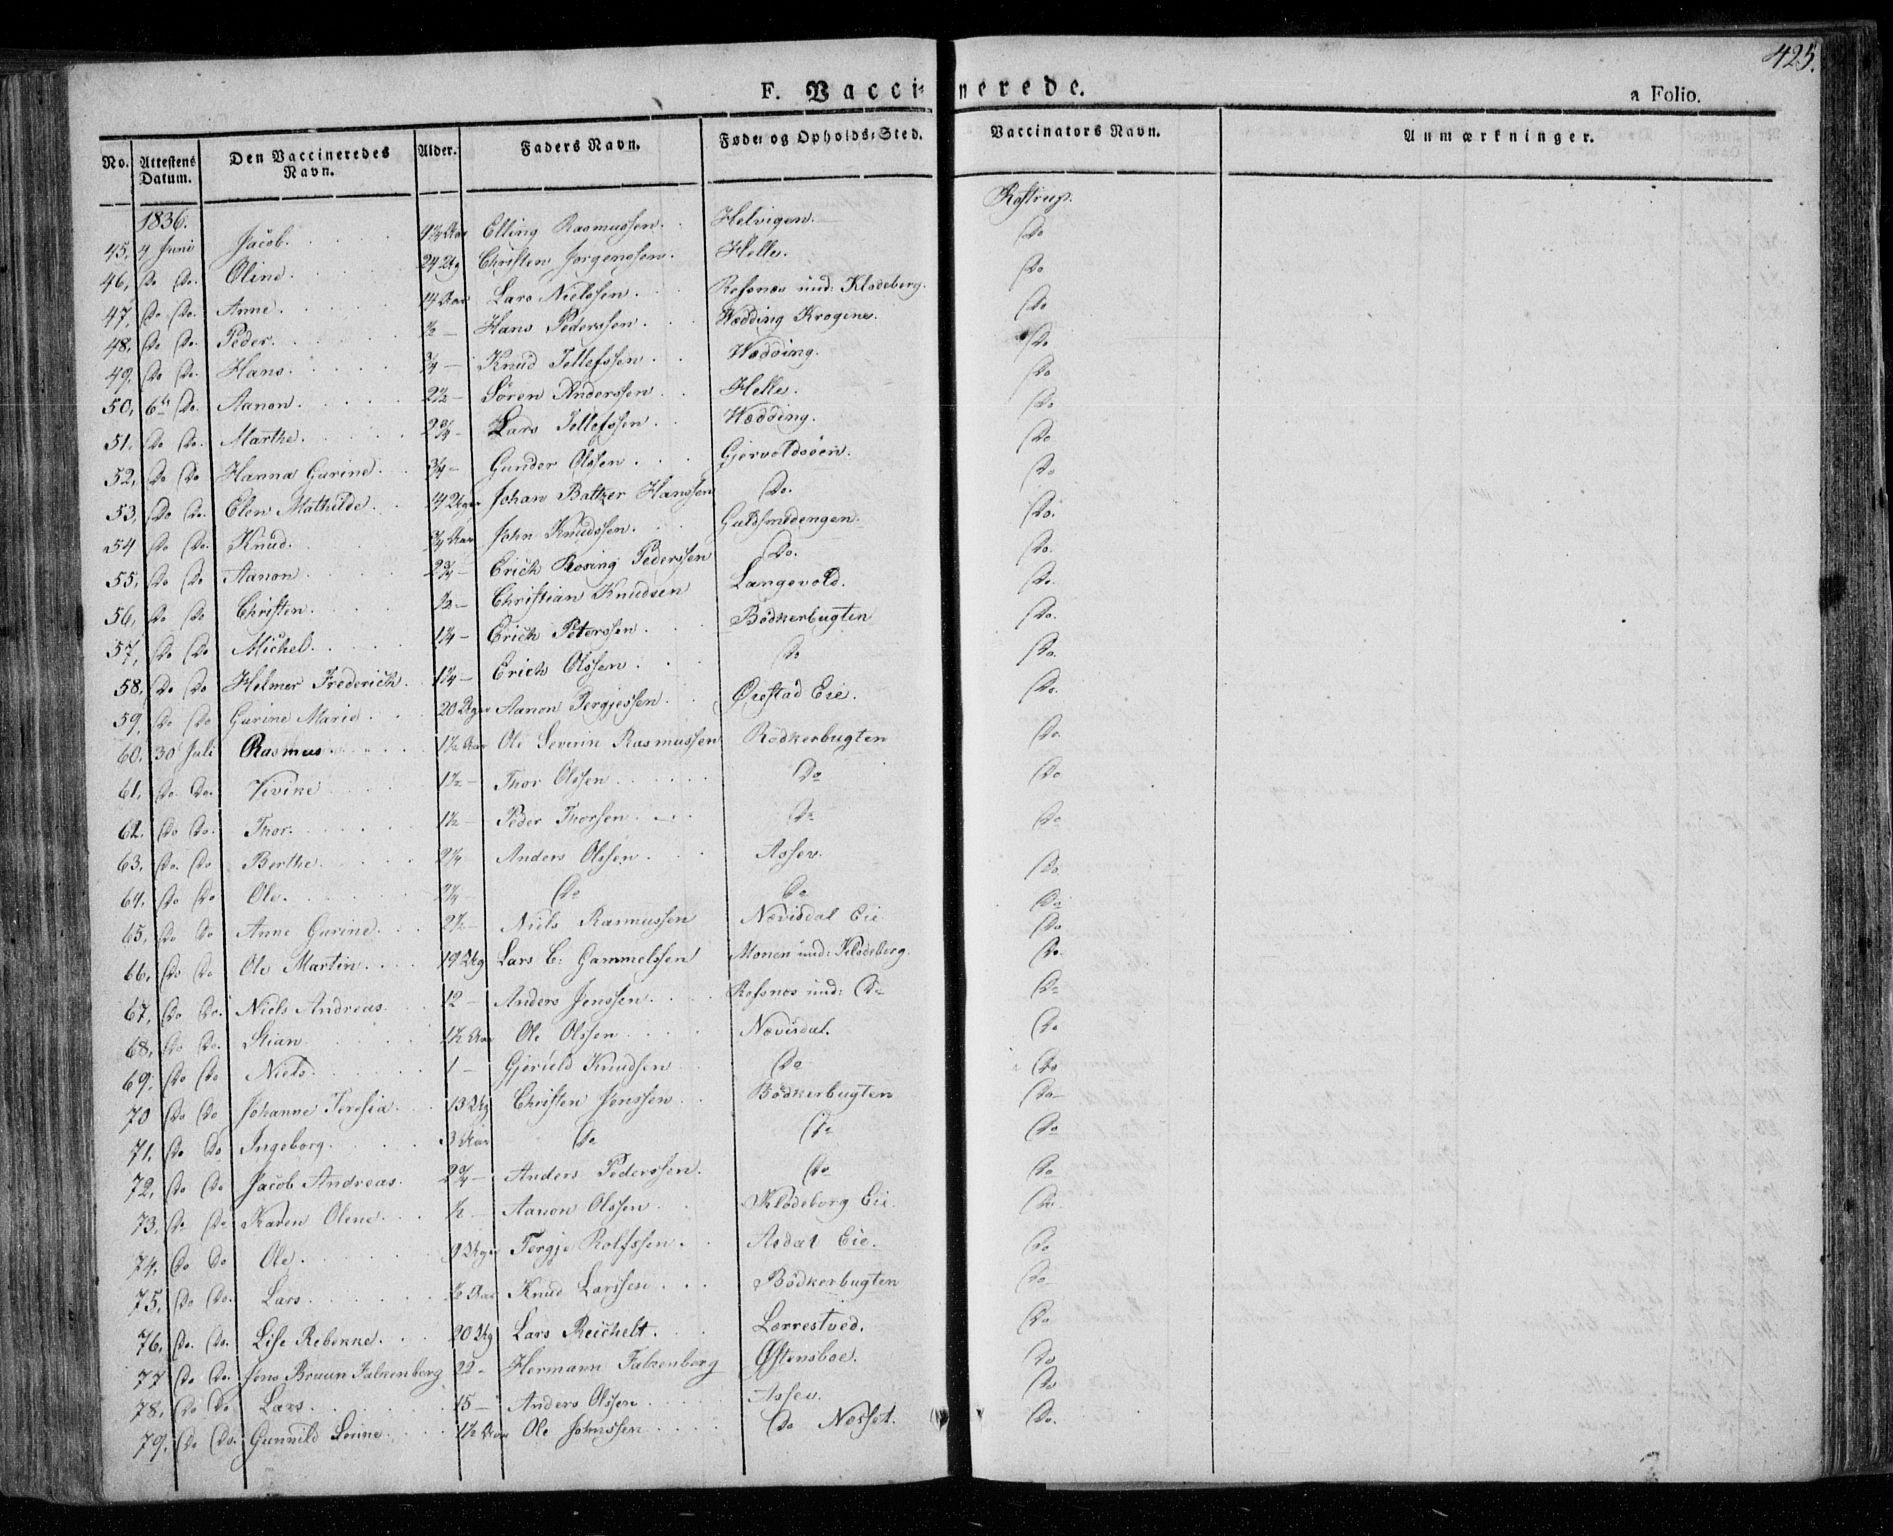 425.
F. Vaccinerede.
a Folio.
No. Attestens Datum. Den Vaccineredes Navn. Alder. Faders Navn. Føde- og Opholds-Sted. Vaccinators Navn. Anmærkninger.
1836.
45, 4 Juni Jacob. Elling Rasmussen. Helvigen. Rostrup.
46, Do Do. Oline. 24 Ug Christen Jørgenssen. Helle. Do
47, Do Do. Anne. Lars Nielssen. Refsnæs und: Klødeberg. Do
48, Do Do. Peder. ½ — Hans Pederssen. Wædding Krogene. Do
49, Do Do. Hans. ¾ — Knud Tellefssen. Wædding. Do
50, 6te Do. Aanon. 2½ — Søren Anderssen. Helle. Do
51. Do Do. Marthe. 2¾ — Lars Tellefssen. Wædding. Do
52, Do Do Hanna Gurine. ¾ — Gunder Olssen. Gjervoldsøen. Do
53, Do Do. Elen Mathilde. 14 Uger Johan Baltzer Hanssen Do. Do
54 Do Do. Knud. ¾ Aar John Knudssen. Guldsmedengen. Do.
55, Do Do Aanon. 2¾ — Erich Rosing Pederssen Do. Do.
56, Do Do Christen. ½ — Christian Knudsen Langevold. Do.
57, Do Do Michel. 1¼ — Erich Peterssen. Bödkerbugten Do.
58, Do Do Helmer Frederich. 1¼ — Erich Olssen. Do Do.
59, Do Do Gurine Marie. 20 Uger Aanon Tergjessen. Øiestad Eie. Do.
60, 30 Juli Rasmus. 1½ Aar Ole Severin Rasmussen Bödkerbugten Do.
61, Do Do. Vivike 1½ — Thor Olssen Do Do
62. Do Do. Thor. 1½ — Peder Thorsen. Do Do
63, Do. Do Berthe. 2¼ Anders Olssen. Assev. Do.
64. Do Do Ole. 2¼ — Do Do Do
65, Do Do Anne Gurine. 2½ — Niels Rasmussen Nævisdal Eie Do
66, Do Do Ole Martin. 19 Ug Lars C: Gammelssen Monen und: Klödeberg. Do.
67, Do Do. Niels Andreas. 12 — Anders Jenssen. Refsnes und: Do Do
68, Do Do. Stian 1½ Aar Ole Olssen Nævisdal. Do
69, Do Do Niels. 1 — Gjeruld Knudsen Do Do
70 Do Do Johanne Teresia. 13 Ug Christen Jenssen. Bödkerbugten Do
71. Do Do Ingeborg. 3 Aar Do Do Do
72, Do Do Jacob Andreas. 2¾ — Anders Pederssen. Do Do
73, Do Do Karen Olene. ½ — Aanon Olssen Klödeberg Eie Do.
74, Do Do Ole. 9 Uger Tergje Rolfssen. Asdal Eie. Do
75, Do Do. Lars. ½ Aar Knud Larssen Bödkerbugten Do
76, Do. Do. Lise Rebekke. 20 Ug Lars Reichelt. Lærrestved. Do
77 Do Do. Jens Bruun Falkenberg 22 — Hermann Falkenberg Østensboe. Do
78, Do Do Lars. 15 — Anders Olssen Assev. Do
79, Do Do. Gunnild 1½ Aar Ole Johnssen Do Næsset. Do.